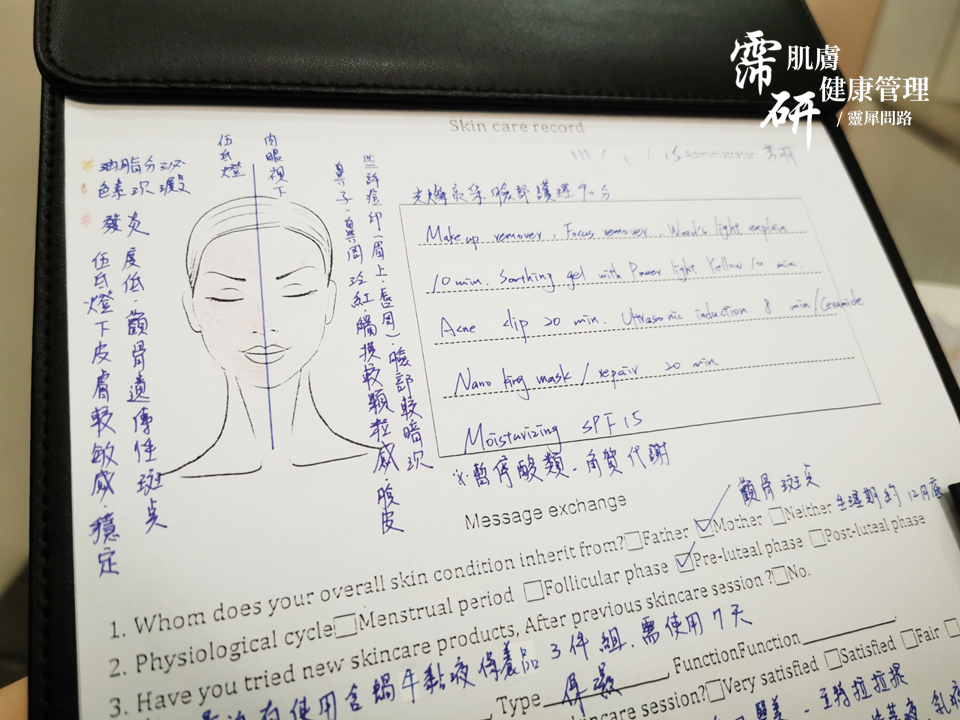 霈研
肌膚
健康管理
/ 靈犀問路
Skin care record
15 Administrator
伍氏燈
肉眼視下
油脂分泌
色素沉澱
發炎
度低、顴骨遺傳性斑点
伍氏燈下皮膚較敏感、穩定
些許痘印(眉上、唇周)、臉部較暗沉
鼻子、鼻周泛紅、觸摸較顆粒感、脫皮
臉部護理90分
Make up remover, Focus remover, Wood's light explain
10 min. Soothing gel with Power light Yellow 10 min.
Acne clip 20 min. Ultrasonic induction 8 min/Ceramide
Nano King mask / repair 20 min
Moisturizing SPF 15
※暫停酸類、角質代謝
Message exchange
顴骨斑点
1. Whom does your overall skin condition inherit from? □Father ☑Mother □Neither 生理期約12月底
2. Physiological cycle □Menstrual period □Follicular phase ☑Pre-luteal phase □Post-luteal phase
3. Have you tried new skincare products, After previous skincare session? □No.
有使用含蝸牛黏液保養品3件組、需使用7天
, Type 保濕, FunctionFunction
skincare session? □Very satisfied □Satisfied □Fair